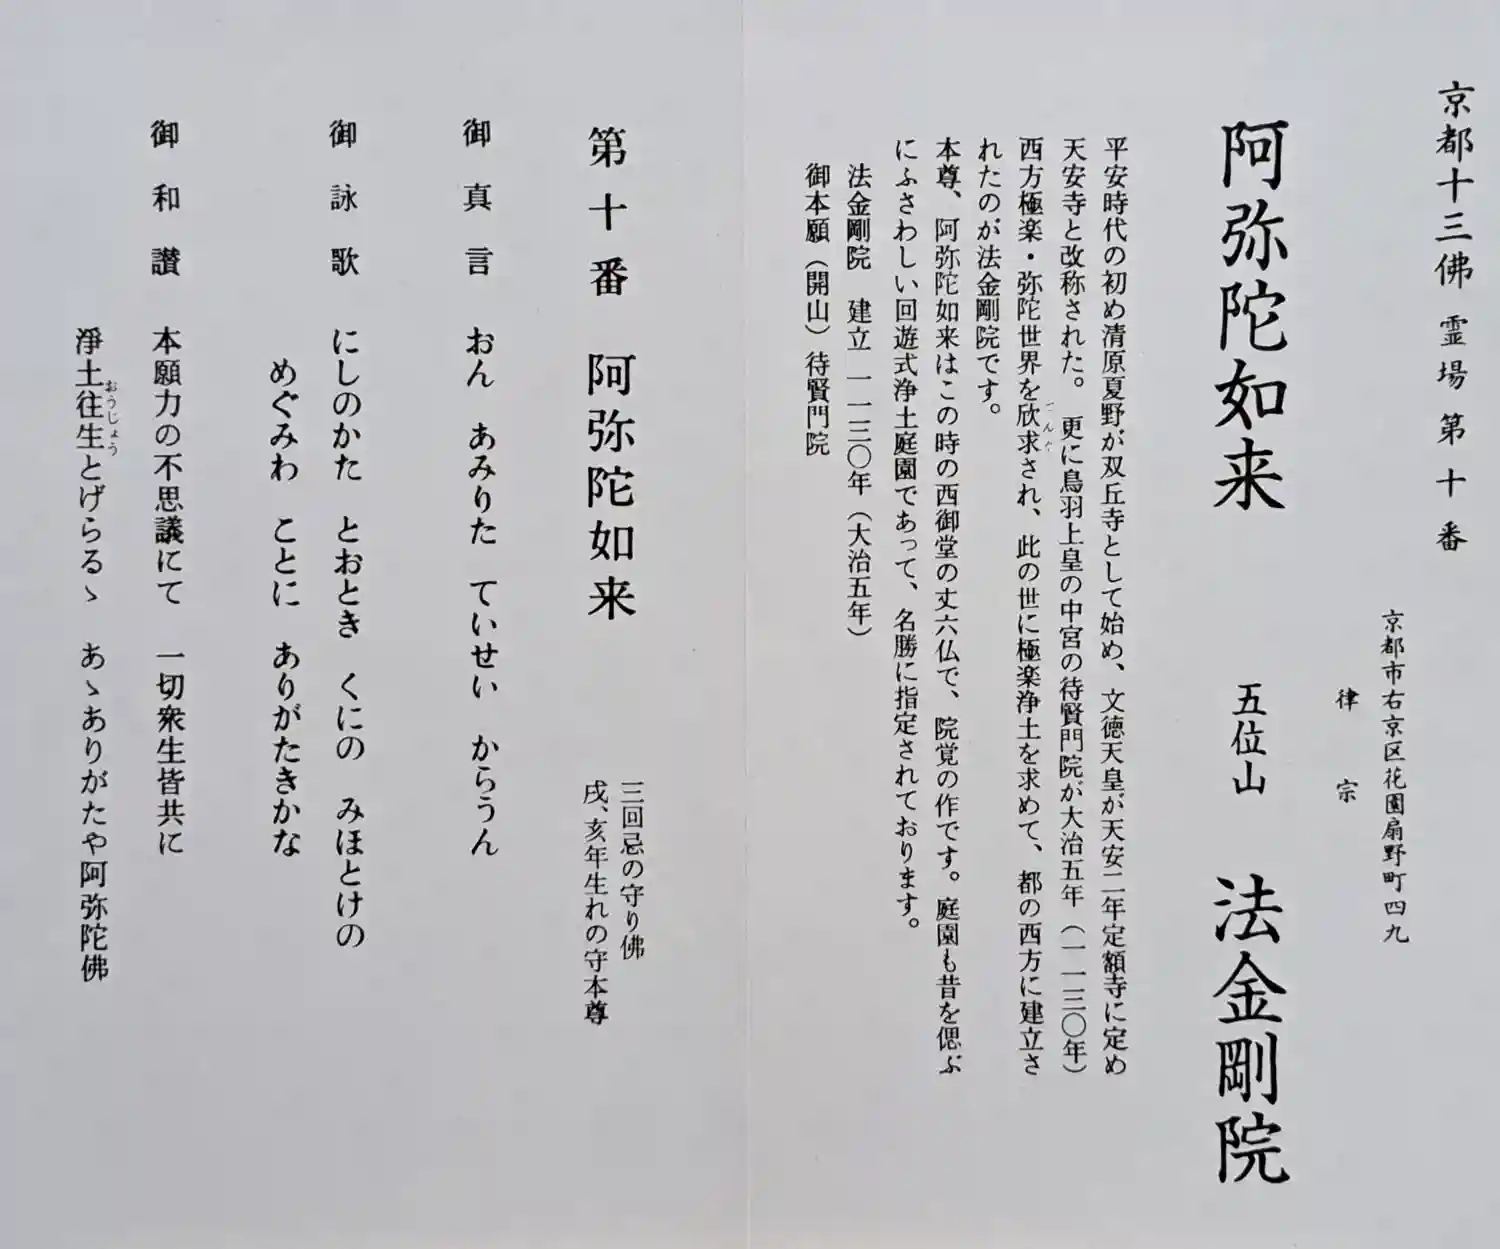 京都十三佛霊場第十番
京都市右京区花園扇野町四九
律宗
阿弥陀如来 五位山 法金剛院
平安時代の初め清原夏野が双丘寺として始め、文徳天皇が天安二年定額寺に定め
天安寺と改称された。更に鳥羽上皇の中宮の待賢門院が大治五年（一一三〇年）
西方極楽・弥陀世界を欣求され、此の世に極楽浄土を求めて、都の西方に建立さ
れたのが法金剛院です。
本尊、阿弥陀如来はこの時の西御堂の丈六仏で、院覚の作です。庭園も昔を偲ぶ
にふさわしい回遊式浄土庭園であって、名勝に指定されております。
法金剛院 建立 一一三〇年（大治五年）
御本願（開山）待賢門院
第十番 阿弥陀如来
三回忌の守り佛
戌、亥年生れの守本尊
御真言 おん あみりた ていせい からうん
御詠歌 にしのかた とおとき くにの みほとけの
めぐみわ ことに ありがたきかな
御和讃 本願力の不思議にて 一切衆生皆共に
淨土往生とげらるゝ あゝありがたや阿弥陀佛
おうじょう